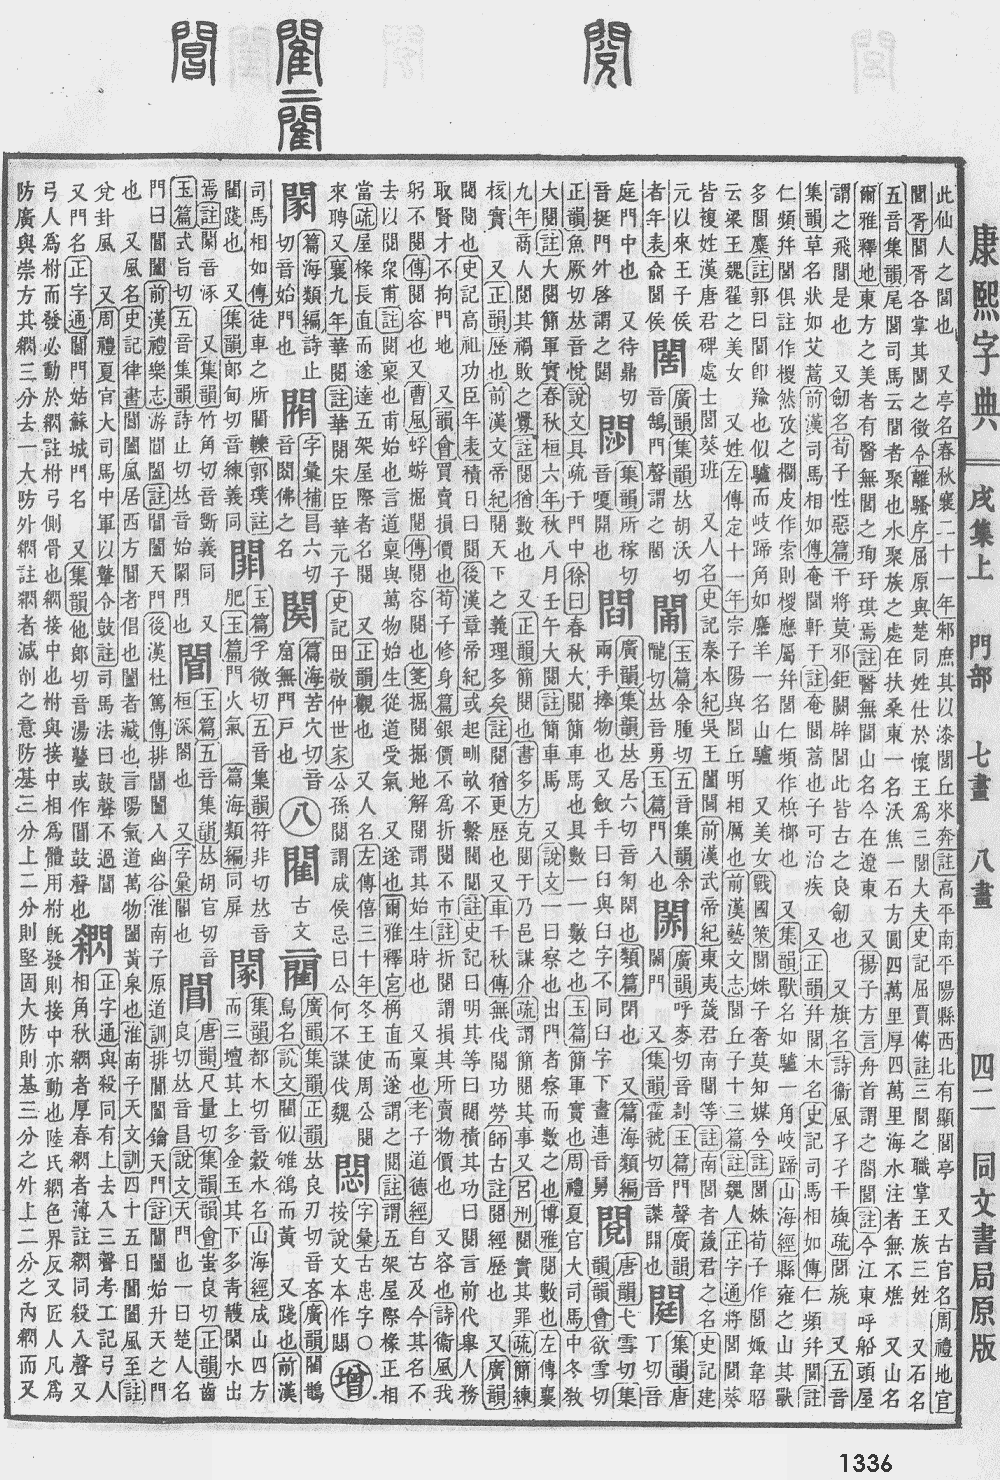 康熙字典 戌集上 門部 七畫 八畫 四二 同文書局原版
此仙人之閭也 又亭名春秋襄二十一年邾庶其以漆閭丘來奔註高平南平陽縣西北有顯閭亭 又古官名周禮地官
閭胥閭胥各掌其閭之徵令離騷序屈原與楚同姓仕於懷王爲三閭大夫史記屈賈傳註三閭之職掌王族三姓 又石名
五音集韻尾閭司馬云閭者聚也水聚族之處在扶桑東一名沃焦一石方圓四萬里厚四萬里海水注者無不燋 又山名
爾雅釋地東方之美者有醫無閭之珣玗琪焉註醫無閭山名今在遼東 又揚子方言舟首謂之閤閭註今江東呼船頭屋
謂之飛閭是也 又劒名荀子性惡篇干將莫邪鉅闕辟閭此皆古之良劒也 又旗名詩衞風孑孑干旟疏閭旐 又五音
集韻草名狀如艾蒿前漢司馬相如傳奄閭軒于註奄閭蒿也子可治疾 又正韻幷閭木名史記司馬相如傳仁頻幷閭註
仁頻幷閭俱註作椶然攷之欄皮作索則椶應屬幷閭仁頻作梹榔也 又集韻獸名如驢一角岐蹄山海經縣雍之山其獸
多閭麋註郭曰閭卽羭也似驢而岐蹄角如麢羊一名山驢 又美女戰國策閭姝子奢莫知媒兮註閭姝荀子作閭娵韋昭
云梁王魏瞿之美女 又姓左傳定十一年宗子陽與閭丘明相厲也前漢藝文志閭丘子十三篇註魏人正字通將閭閭葵
皆複姓漢唐君碑處士閭葵班 又人名史記秦本紀吳王闔閭前漢武帝紀東夷薉君南閭等註南閭者薉君之名史記建
元以來王子侯者年表兪閭侯
廣韻集韻𠀤胡沃切音鵠門聲謂之閣
玉篇余腫切五音集韻余隴切𠀤音勇玉篇門人也
閑 廣韻呼麥切音剨玉篇門聲廣韻闗門 又集韻霍虢切音謋開也
閮 集韻唐丁切音庭門中也 又待鼎切音挺門外啓謂之閮
集韻所稼切音嗄開也
廣韻集韻𠀤居六切音匊閑也類篇閉也 又篇海類編兩手捧物也又斂手曰臼與臼字不同臼字下畫連音舅
閱 唐韻弋雪切集韻韻會欲雪切正韻魚厥切𠀤音悅說文具疏于門中徐曰春秋大閱簡車馬也具數一一數之也玉篇簡軍實也周禮夏官大司馬中冬敎
大閱註大閱簡軍實春秋桓六年秋八月壬午大閱註簡車馬 又說文一曰察也出門者察而數之也博雅閱數也左傳襄
九年商人閱其禍敗之釁註閱猶數也 又正韻簡閱也書多方克閱于乃邑謀介疏謂簡閱其事又呂刑閱實其罪疏簡練
核實 又正韻歷也前漢文帝紀閱天下之義理多矣註閱猶更歷也又車千秋傳無伐閱功勞師古註閱經歷也 又廣韻
閥閱也史記高祖功臣年表積日曰閱後漢章帝紀或起甽畝不繫閥閱註史記曰明其等曰閥積其功曰閱言前代舉人務
取賢才不拘門地 又韻會買賣損價也荀子修身篇良賈不爲折閱不市註折閱謂損其所賣物價也 又容也詩衞風我
躬不閱傳閱容也又曹風蜉蝣掘閱傳閱容閱也箋掘閱掘地解閱謂其始生時也 又稟也老子道德經自古及今其名不
去以閱衆甫註閱稟也甫始也言道稟與萬物始生從道受氣 又遂也爾雅釋宮桷直而遂謂之閱註謂五架屋際椽正相
當疏屋椽長直而遂達五架屋際者名閱 又正韻觀也 又人名左傳僖三十年冬王使周公閱
來聘又襄九年華閱註華閱宋臣華元子史記田敬仲世家公孫閱謂成侯忌曰公何不謀伐魏
字彙古患字〇按說文本作悶
增
篇海類編詩止切音始門也
字彙補昌六切音閦佛之名
篇海苦穴切音窟無門戸也
八
閵 古文
廣韻集韻正韻𠀤良刃切音吝廣韻閵鵲鳥名說文閵似鴝鵒而黃 又踐也前漢
司馬相如傳徒車之所閵轢郭璞註閵踐也 又集韻郞甸切音練義同
玉篇字微切五音集韻符非切𠀤音肥玉篇門
集韻都木切音縠水名山海經成山四方而三壇其上多金玉其下多靑雘閡水出
焉註閡音涿 又集韻竹角切音斲義同
門火氣 篇海類編同扉
玉篇式旨切五音集韻詩止切𠀤音始闌門也 又
玉篇五音集韻𠀤胡官切音桓深閤也 又字彙閹也
閶 唐韻尺量切集韻韻會蚩良切正韻齒良切𠀤音昌說文天門也一曰楚人名
門曰閶闔前漢禮樂志游閶闔註閶闔天門後漢杜篤傳排閶闔入幽谷淮南子原道訓排閶闔鑰天門註閶闔始升天之門
也 又風名史記律書閶闔風居西方閶者倡也闔者藏也言陽氣道萬物闔黃泉也淮南子天文訓四十五日閶闔風至註
兌卦風 又周禮夏官大司馬中軍以鼙令鼓註司馬法曰鼓聲不過閶
又門名正字通閶門姑蘇城門名 又集韻他郞切音湯鼞或作閶鼓聲也
正字通與殺同有上去入三聲考工記弓人
弓人爲柎而發必動於䦘註柎弓側骨也䦘接中也柎與接中相爲體用柎旣發則接中亦動也陸氏䦘色界反又匠人凡爲
防廣與崇方其䦘三分去一大防外䦘註䦘者減削之意防基三分上二分則堅固大防則基三分之外上二分之內䦘而又
1336